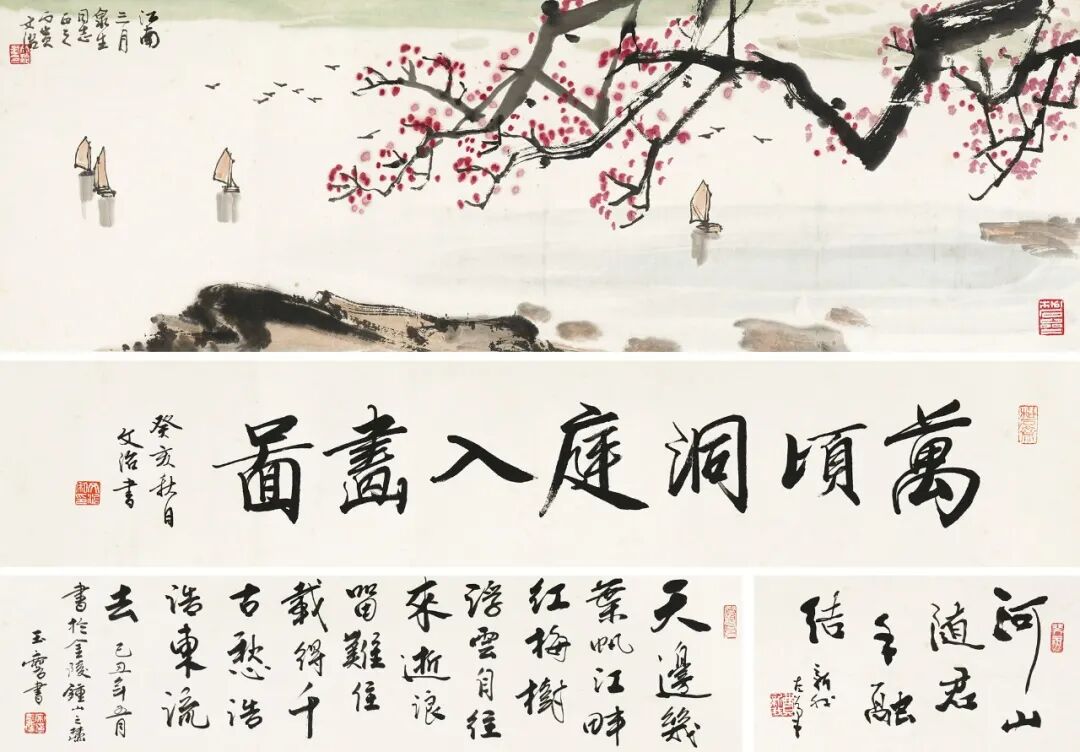 江南
三月
泉生
同志
正之
丙寅
文治
萬頃洞庭入畫圖
癸亥秋日
文治書
河山
隨君
手融
結
新我
左筆
天邊幾
葉帆江畔
紅梅樹
浮雲自往
來逝浪
留難住
載得千
古愁浩
浩東流
去
己丑年五月
書於金陵鍾山之陰